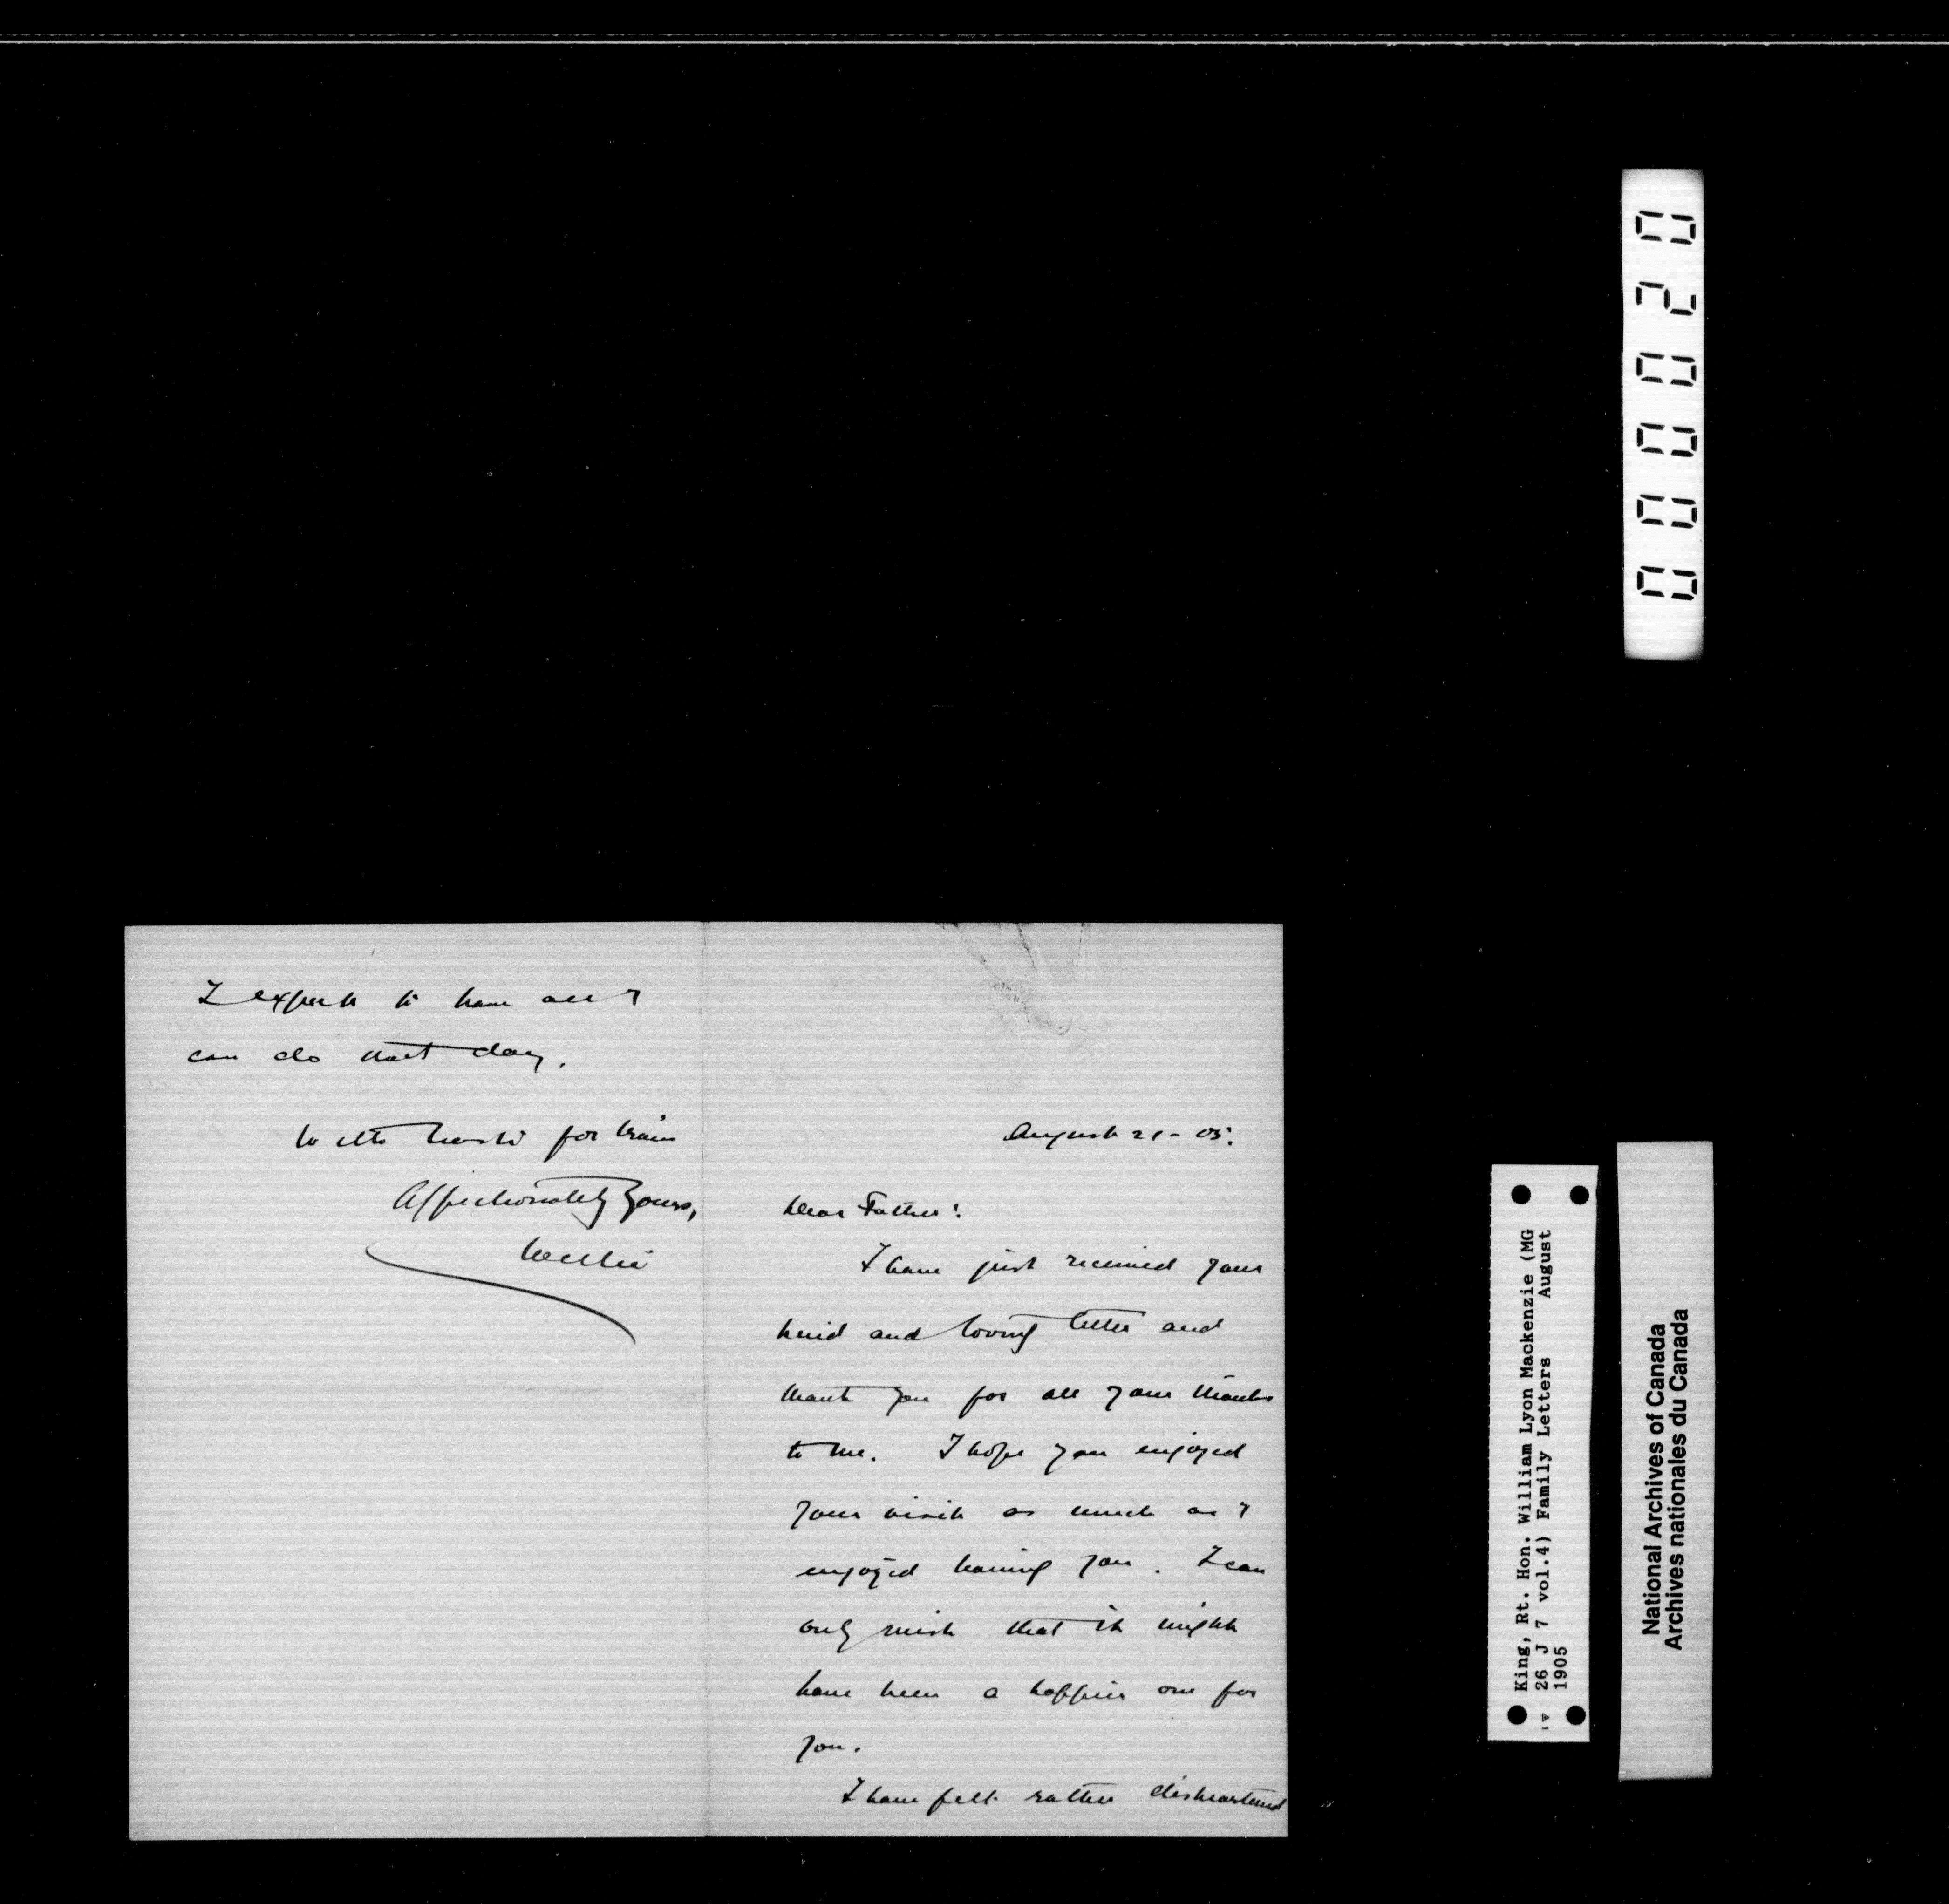 I expect to have all I
can do that day.
for train
Affectionately Yours,
Willie
August 21 - 05.
Dear Father:
I have just received your
kind and loving letter and
thank you for all your thanks
to me. I hope you enjoyed
your visit as much as I
enjoyed having you. I can
only wish that it might
have been a happier one for
you.
I have felt rather disheartened
000020
King, Rt. Hon. William Lyon Mackenzie (MG
26 J 7 vol.4) Family Letters August
1905
National Archives of Canada
Archives nationales du Canada